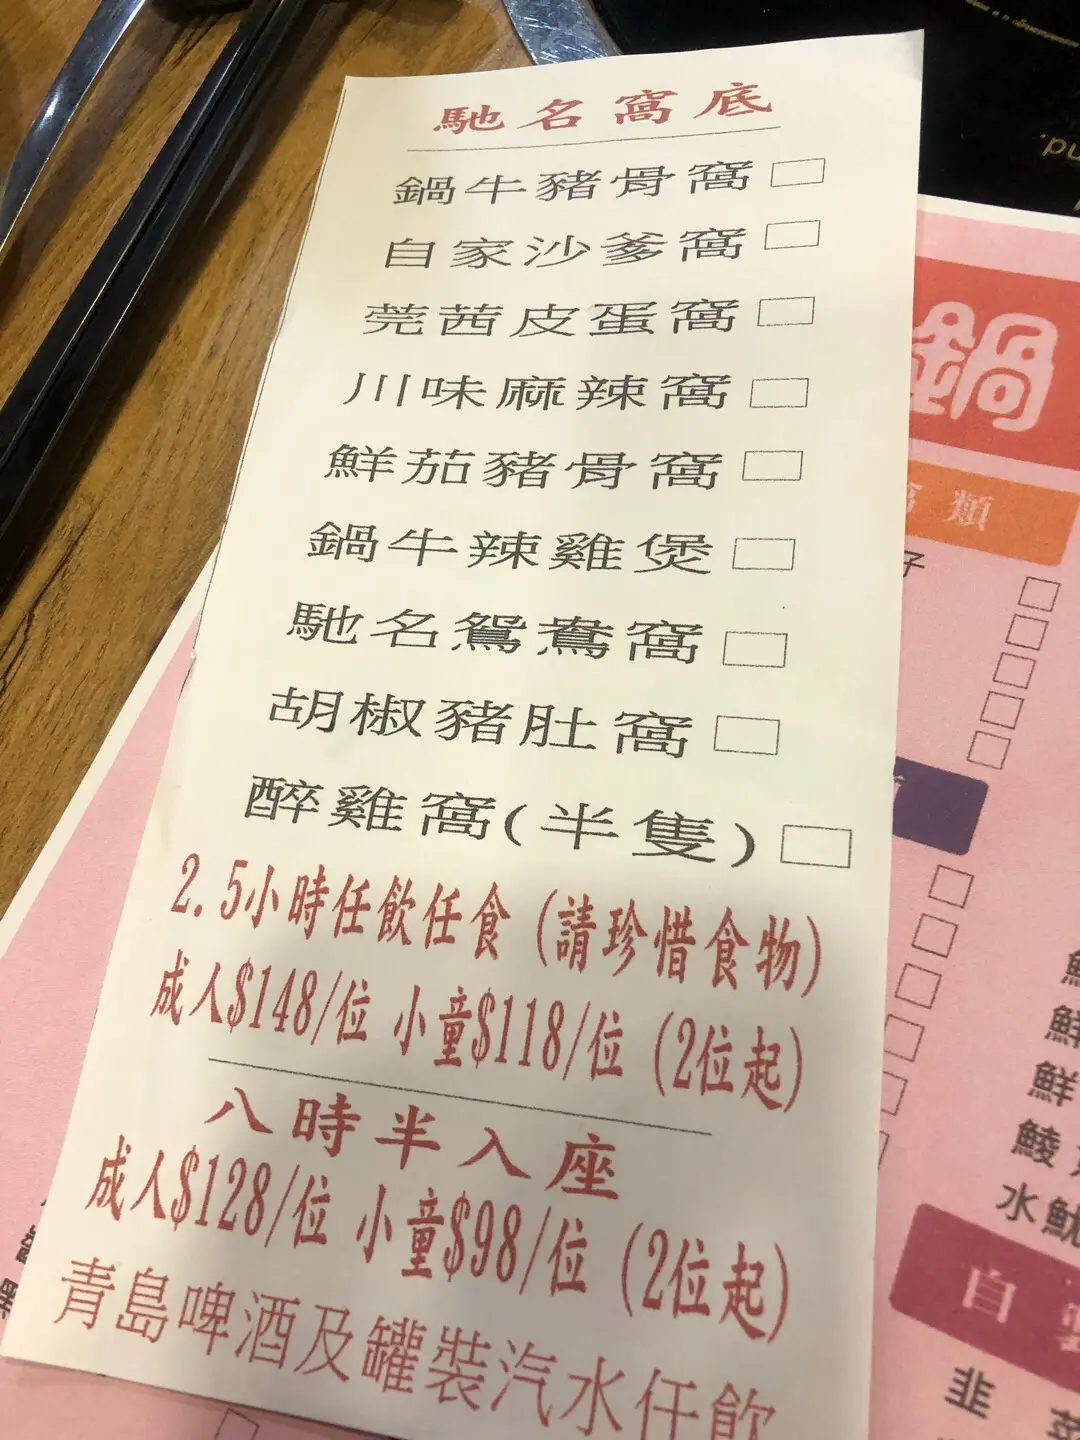 馳名窩底
鍋牛豬骨窩
自家沙爹窩
莞茜皮蛋窩
川味麻辣窩
鮮茄豬骨窩
鍋牛辣雞煲
馳名鴛鴦窩
胡椒豬肚窩
醉雞窩(半隻)
2.5小時任飲任食(請珍惜食物)
成人$148/位 小童$118/位 (2位起)
八時半入座
成人$128/位 小童$98/位 (2位起)
青島啤酒及罐裝汽水仟飲
鍋
類
子
鮮
鮮
鮮
鯪
水魷
自
韭菜